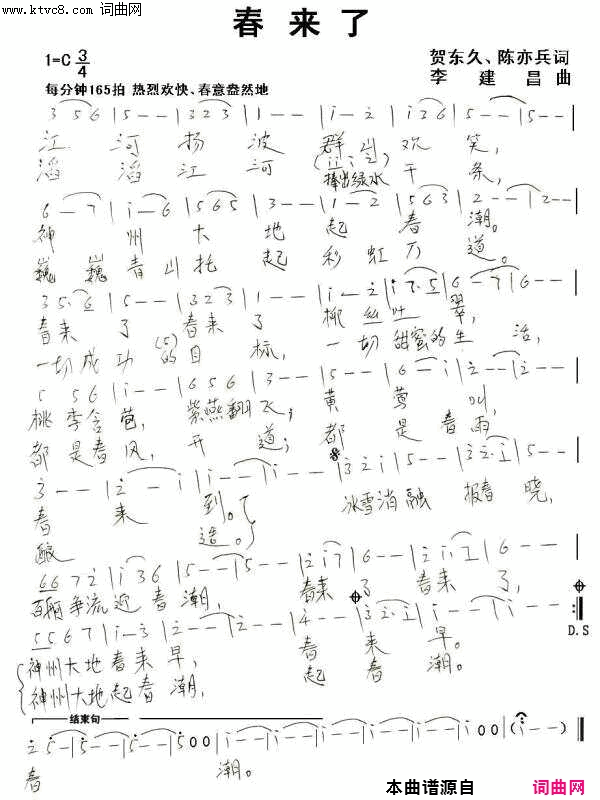 www.ktvc8.com 词曲网
春来了
1=C 3/4
贺东久、陈亦兵词
李建昌曲
每分钟165拍 热烈欢快、春意盎然地
3 5 6 | 5 - - | 3 2 3 | 1 - - | i - 2 | i 3 5 | 6 - - | 6 - - |
江河扬波群山欢笑,
滔滔江河捧出绿水千条,
6 - 7 | i - 6 | 5 6 5 | 3 - - | 1 - 2 | 5 6 3 | 2 - - | 2 - - |
神州大地起春潮。
巍巍青山托起彩虹万道。
3 5· 6 | 5 - - | 3 2 3 | 1 - - | i - 2 | i 7· 5 | 6 - 7 | 6 - - |
春来了春来了柳丝叶翠,
一切成功的目标,一切甜蜜的生活,
5 5 6 | i - - | 6 5 6 | 3 - - | 5 - - | 6 - i | 2 - - | 2 - - |
桃李含苞,紫燕翻飞,黄莺叫,
都是春风,开道;都是春雨
3 - - | 2 - i | i - - | i - - | 3 2· i | 5 - - | 3 2· i | 5 - - |
春来到。冰雪消融报春晓,
酿造。
6 6 7 2 | i 3 6 | 5 - - | 5 - - | 2 i 7 | 6 - - | 2 i· i | 6 - - |
百舸争流迎春潮,春来了春来了,
5 5 6 7 | i - 3 | 2 - - | 2 - - | 4 - - | 3 - i | i - - | i - - :||
D.S
神州大地春来早,春来早。
神州大地起春潮,起春潮。
结束句
2 5 - | 5 - - | 5 - - | 5 0 0 | i - - | i - - | i - - | i - - | i 0 0 | (i - - | i 0 0) ||
春潮。
本曲谱源自 词曲网